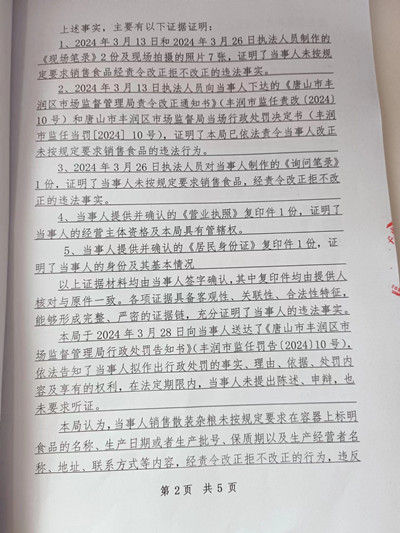 上述事实，主要有以下证据证明：
1、2024年3月13日和2024年3月26日执法人员制作的
《现场笔录》2份及现场拍摄的照片7张，证明了当事人未按规
定要求销售食品经责令改正拒不改正的违法事实。
2、2024年3月13日执法人员向当事人下达的《唐山市丰
润区市场监督管理局责令改正通知书》（丰润市监任责改〔2024〕
10号）和唐山市丰润区市场监督局当场行政处罚决定书（丰润
市监任当罚[2024] 10号），证明了本局已依法责令当事人改正
未按规定要求销售食品的违法行为。
3、2024年3月26日执法人员对当事人制作的《询问笔录》
1份，证明了当事人未按规定要求销售食品，经责令改正拒不改
正的违法事实。
4、当事人提供并确认的《营业执照》复印件1份，证明了
当事人的经营主体资格及本局具有管辖权。
5、当事人提供并确认的《居民身份证》复印件1份，证
明了当事人的身份及其基本情况
以上证据材料均由当事人签字确认，其中复印件均由提供人
核对与原件一致。各项证据具备客观性、关联性、合法性特征，
能够形成完整、严密的证据链，充分证明了当事人的违法事实。
本局于2024年3月28日向当事人送达了《唐山市丰润区市
场监督管理局行政处罚告知书》（丰润市监任罚告〔2024〕10号），
依法告知了当事人拟作出行政处罚的事实、理由、依据、处罚内
容及享有的权利，在法定期限内，当事人未提出陈述、申辩，也
未要求听证。
本局认为，当事人销售散装杂粮未按规定要求在容器上标明
食品的名称、生产日期或者生产批号、保质期以及生产经营者名
称、地址、联系方式等内容，经责令改正拒不改正的行为，违反
第2页 共5页